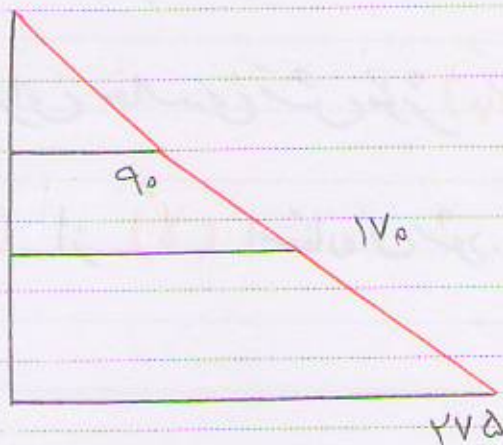 ۹۰
۱۷۰
۲۷۵